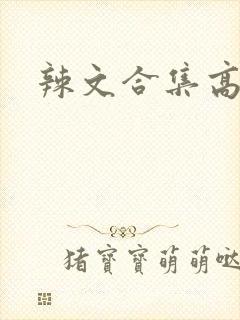 辣文合集高
猪寶寶萌萌哒